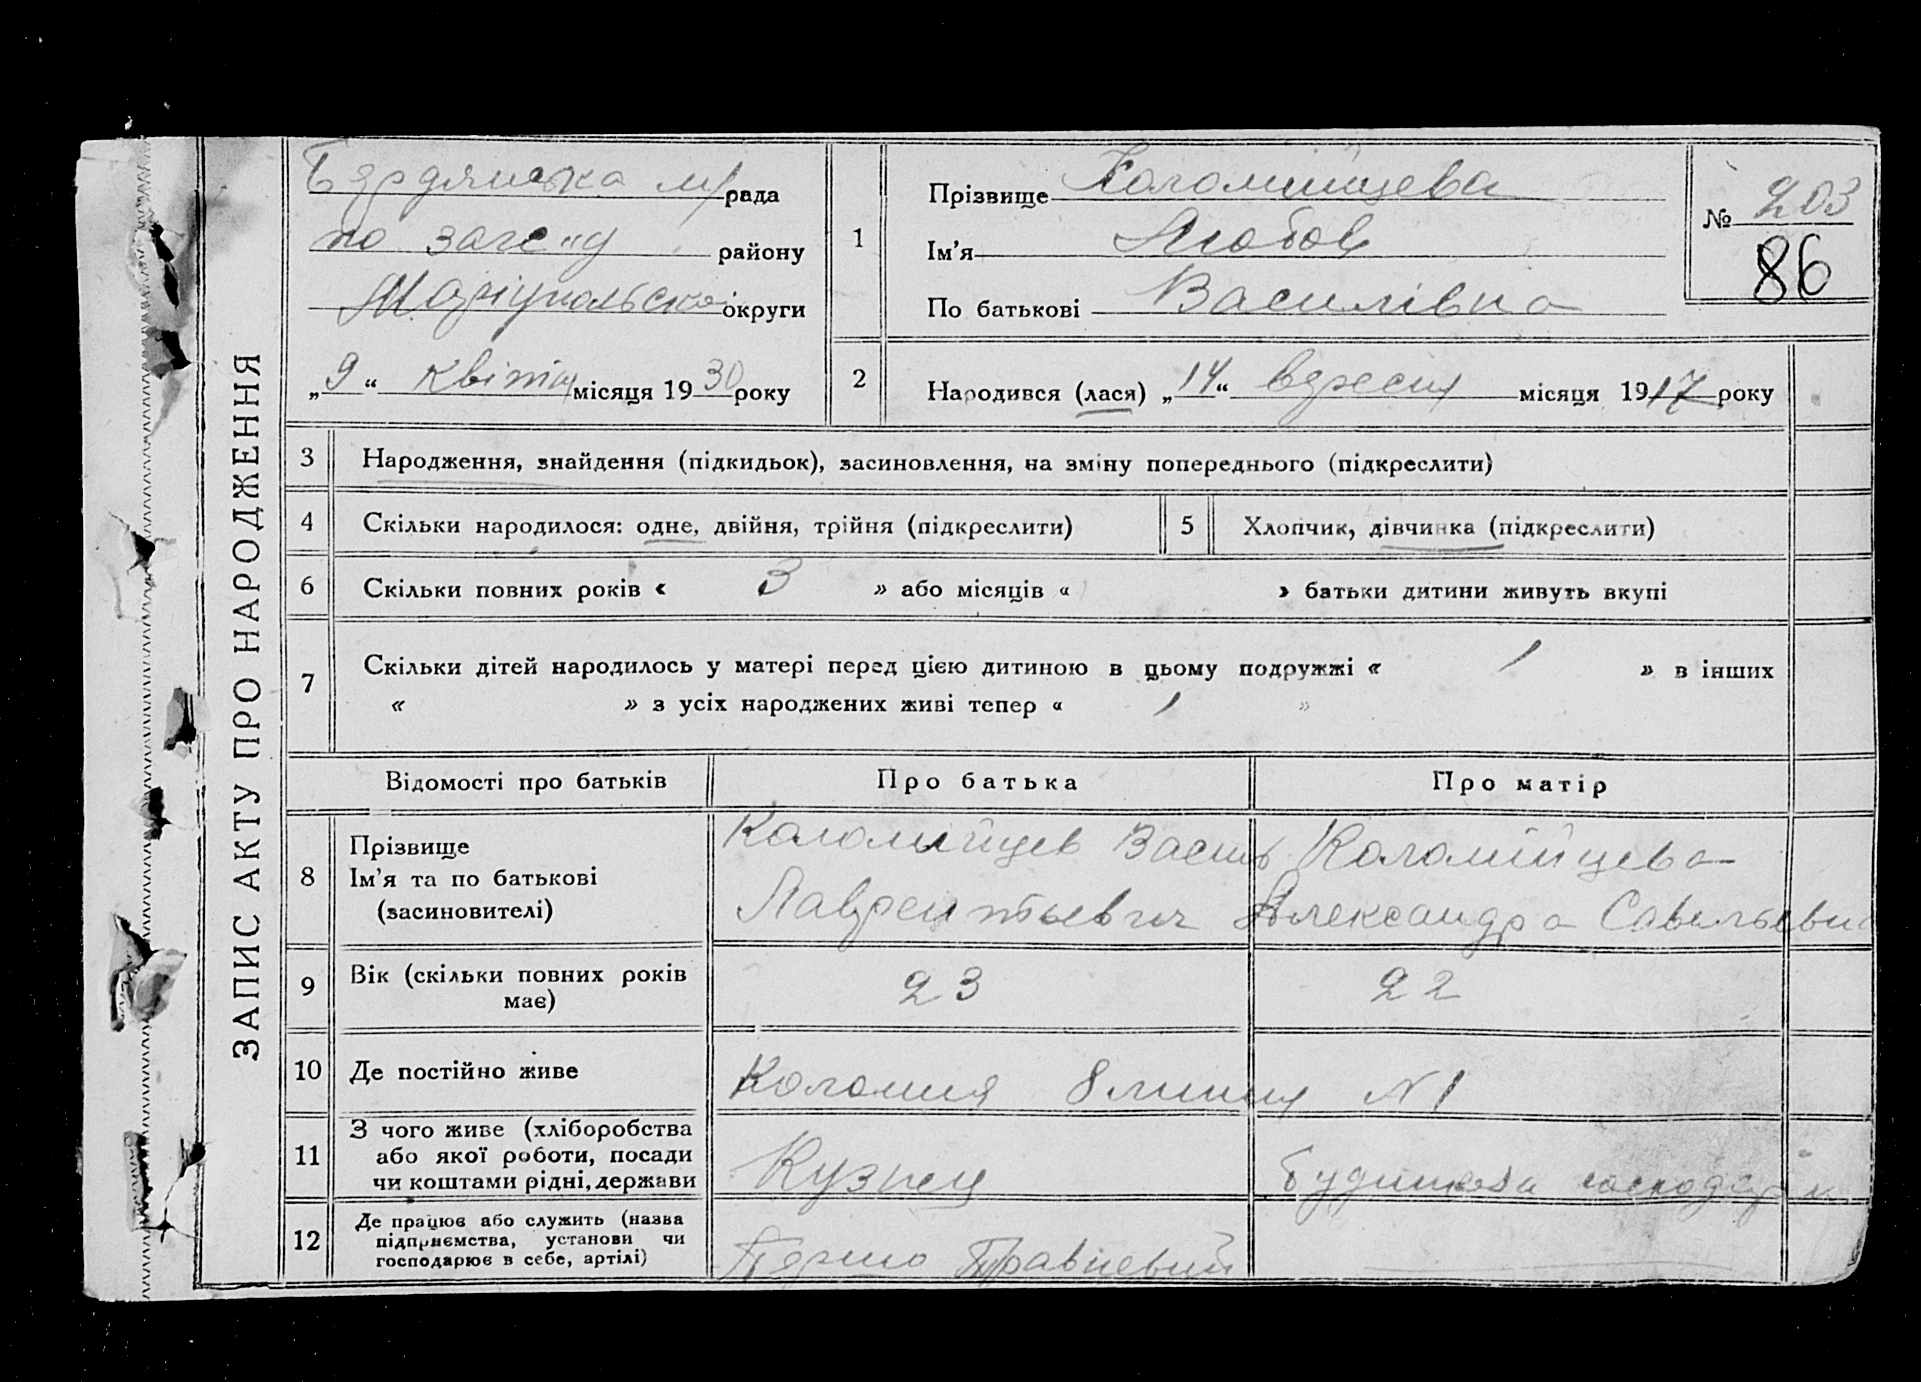 ЗАПИС АКТУ ПРО НАРОДЖЕННЯ
Бердянська м/рада
по загс"у району
Маріупольської округи
„9“ квітня місяця 1930 року
1
Прізвище Коломийцева
Ім'я Любов
По батькові Василівна
№ 203
86
2
Народився (лася) „14“ вересня місяця 1917 року
3 Народження, знайдення (підкидьок), засиновлення, на зміну попереднього (підкреслити)
4 Скільки народилося: одне, двійня, трійня (підкреслити)
5 Хлопчик, дівчинка (підкреслити)
6 Скільки повних років « 3 » або місяців « » батьки дитини живуть вкупі
7 Скільки дітей народилось у матері перед цією дитиною в цьому подружжі « 1 » в інших
« » з усіх народжених живі тепер « 1 »
Відомості про батьків Про батька Про матір
8 Прізвище
Ім'я та по батькові
(засиновителі)
Коломийцев Василь
Лаврентьевич
Коломійцева
Александра Савельевна
9 Вік (скільки повних років
має)
23 22
10 Де постійно живе Колония 8 линия N 1
11 З чого живе (хліборобства
або якої роботи, посади
чи коштами рідні, держави
Кузнец
господарк
12 Де працює або служить (назва
підприємства, установи чи
господарює в себе, артілі)
Першо Травневый